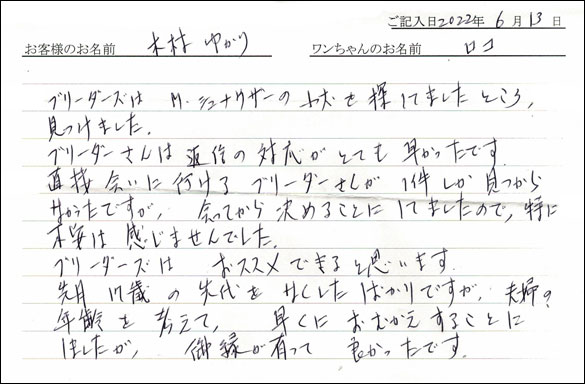 ご記入日2022年 6月 13日
お客様のお名前 木村 ゆかり ワンちゃんのお名前 ロコ
ブリーダーズは M.シュナウザーの ♂犬を 探してましたところ、
見つけました。
ブリーダーさんは 返信の 対応が とても 早かったです。
直接 会いに 行ける ブリーダーさんが 1件 しか 見つから
なかったですが、 会ってから 決めることに してましたので、特に
不安は 感じませんでした。
ブリーダーズは おススメできると思います。
先月 17歳 の 先代を なくした ばかりですが、 夫婦の
年齢を 考えて、 早くに おむかえすることに
しましたが、 御縁が有って 良かったです。